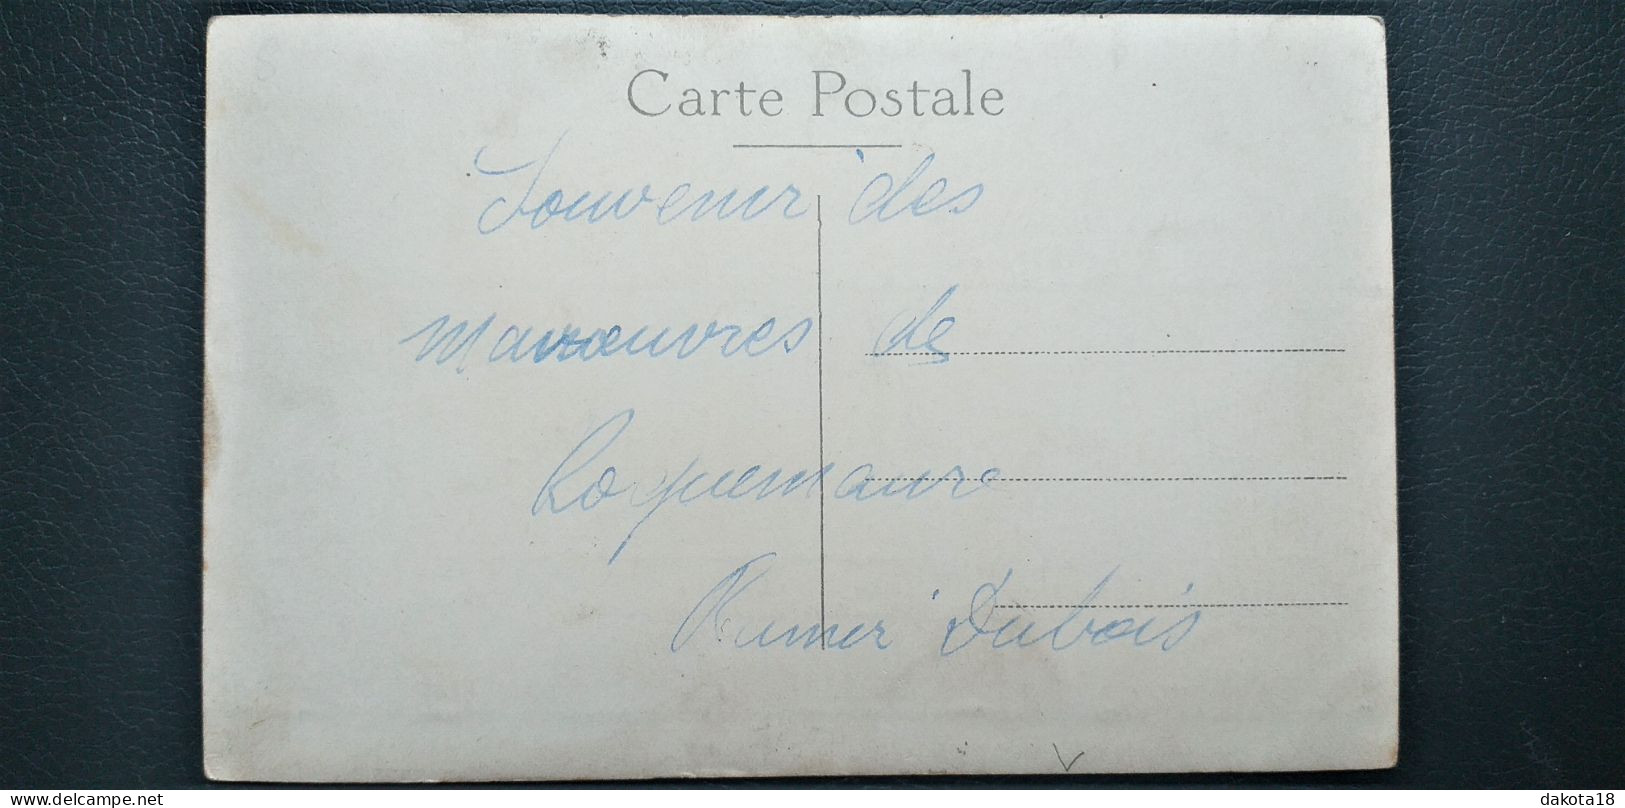 Carte Postale
Souvenir des
manœuvres de
Roquemaure
Dubois
www.delcampe.net
dakota18